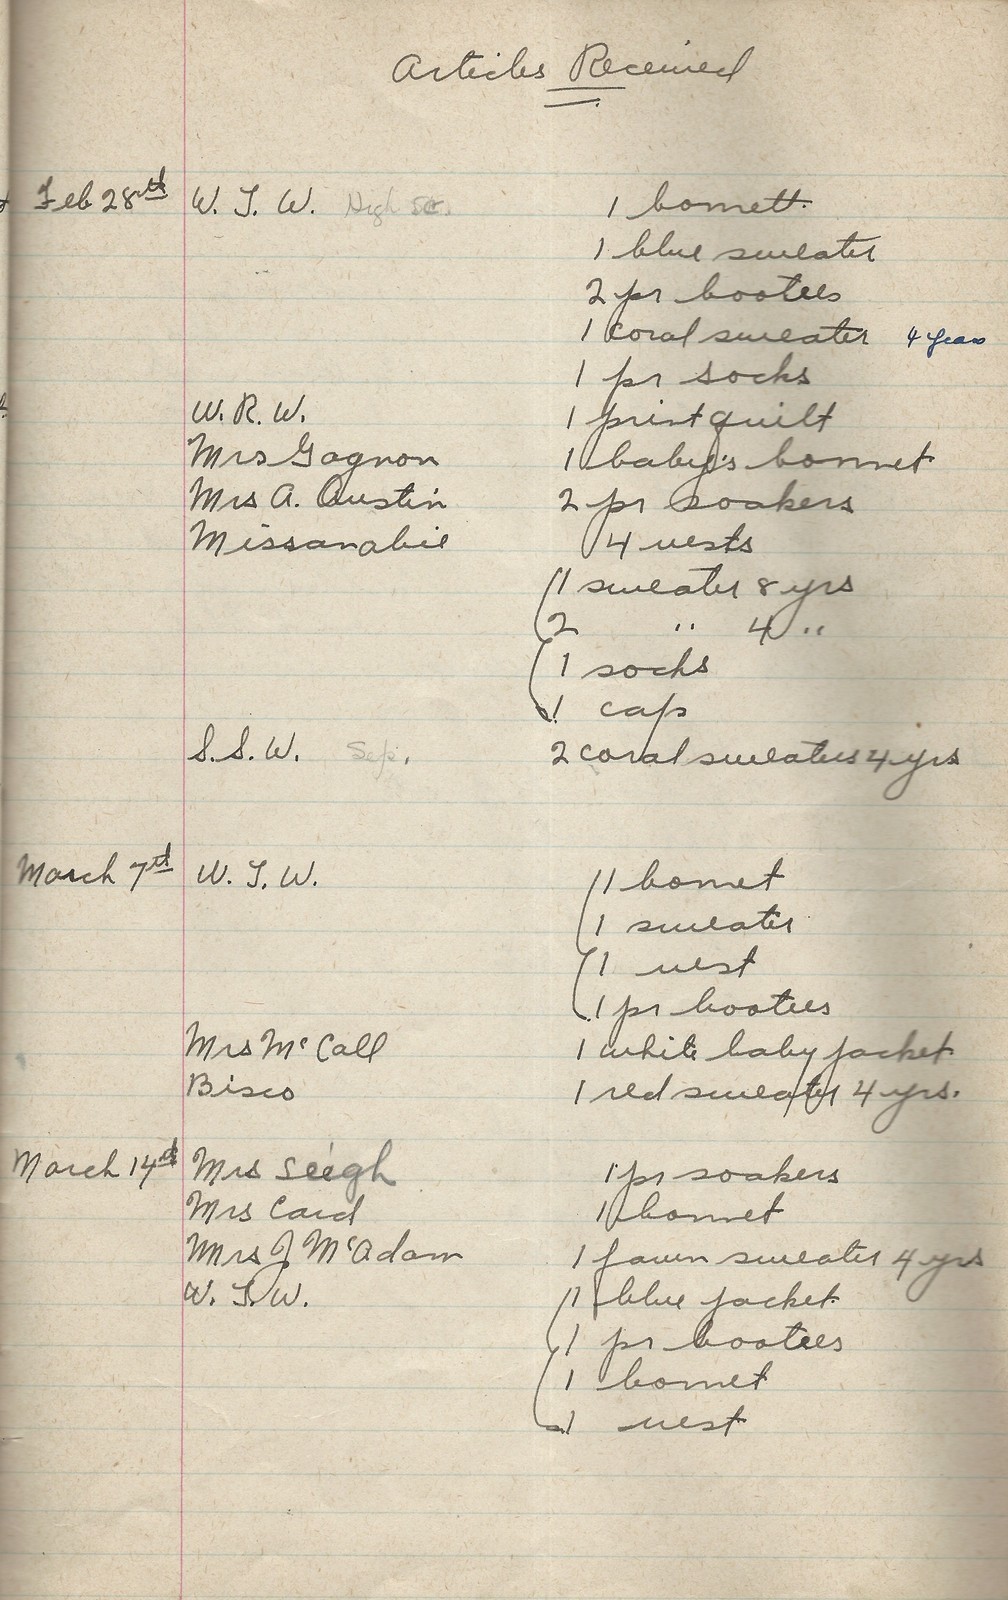 Articles Received
Feb 28th W. T. W. High Sc. 1 bonnett
1 blue sweater
2 pr bootees
1 coral sweater 4 years
1 pr socks
W. R. W. 1 print quilt
Mrs Gagnon 1 baby's bonnet
Mrs A. Austin 2 pr soakers
Missanabie 4 vests
1 sweater 8 yrs
2 " 4 "
1 socks
1 cap
S. S. W. Sep. 2 coral sweaters 4 yrs
March 7th W. T. W. 1 bonnet
1 sweater
1 vest
1 pr bootees
Mrs McCall 1 white baby jacket
Bisco 1 red sweater 4 yrs.
March 14th Mrs Sleigh 1 pr soakers
Mrs Card 1 bonnet
Mrs J McAdam 1 fawn sweater 4 yrs
W. T. W. 1 blue jacket
1 pr bootees
1 bonnet
1 vest